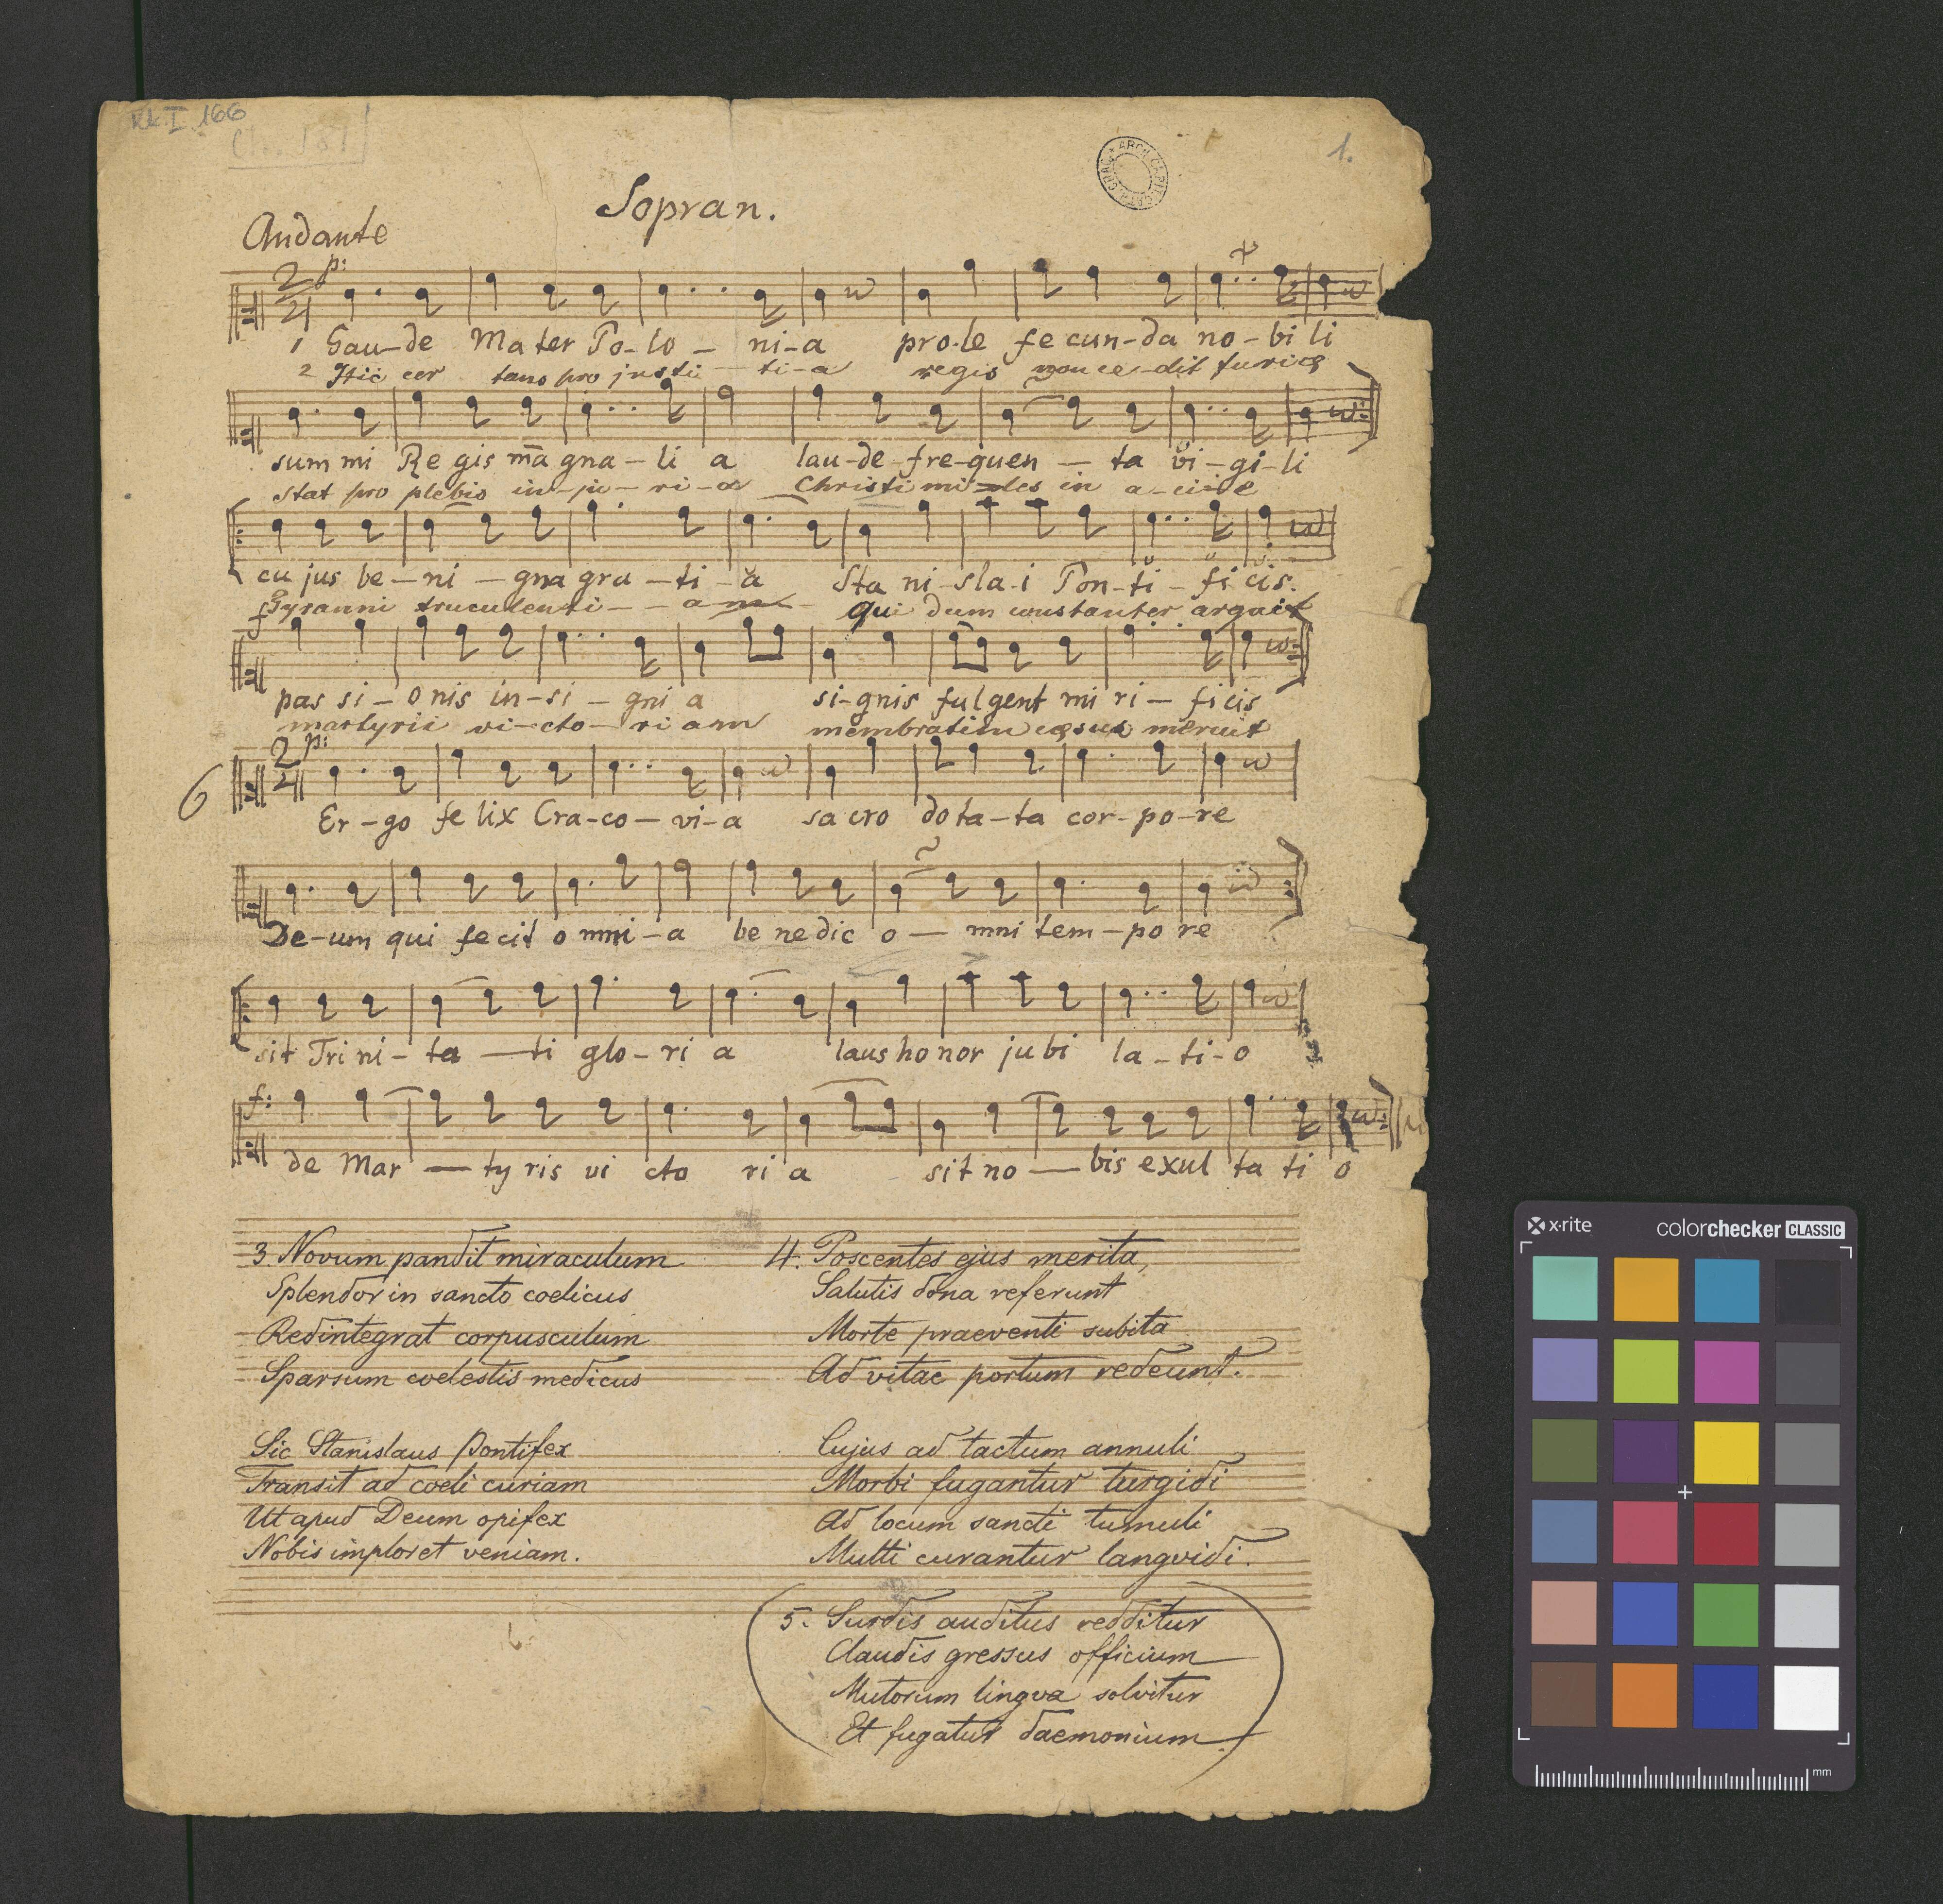 Kk. I. 166
1.
ARCH. CAPIT. CATH. CRAC.
Sopran.
Andante
p:
1 Gau-de Mater Po-lo-ni-a pro-le fecun-da no-bili
2 Hic cer tans pro justi-ti-a regis non ce-dit furiæ
summi Regis magna-li a lau-de fre-quen-ta vi-gi-li
stat pro plebis in-ju-ri-a Christi miles in a-cie
cujus be-ni-gna gra-ti-a Sta ni-sla-i Pon-ti-ficis.
f Tyranni truculenti--am qui dum constanter arguit
passi-onis in-si-gni a si-gnis fulgent miri-ficis
martyrii vi-cto-riam membratim cæsus meruit
p:
6 Er-go felix Cra-co-vi-a sacro dota-ta cor-po-re
De-um qui fecit omni-a benedic o-mni tem-pore
sit Trini-ta-ti glo-ri a laus honor jubi la-ti-o
f:
de Mar-ty ris vi cto ri a sit no-bis exul ta ti o
3 Novum pandit miraculum
Splendor in sancto coelicus
Redintegrat corpusculum
Sparsum coelestis medicus
Sic Stanislaus Pontifex
Transit ad coeli curiam
Ut apud Deum opifex
Nobis imploret veniam.
4. Poscentes ejus merita,
Salutis dona referunt
Morte praeventi subita
Ad vitae portum redeunt.
Cujus ad tactum annuli
Morbi fugantur turgidi
Ad locum sancti tumuli
Multi curantur langvidi.
5. Surdis auditus redditur
Claudis gressus officium
Mutorum lingva solvitur
Et fugatur daemonium.
x-rite
colorchecker CLASSIC
mm